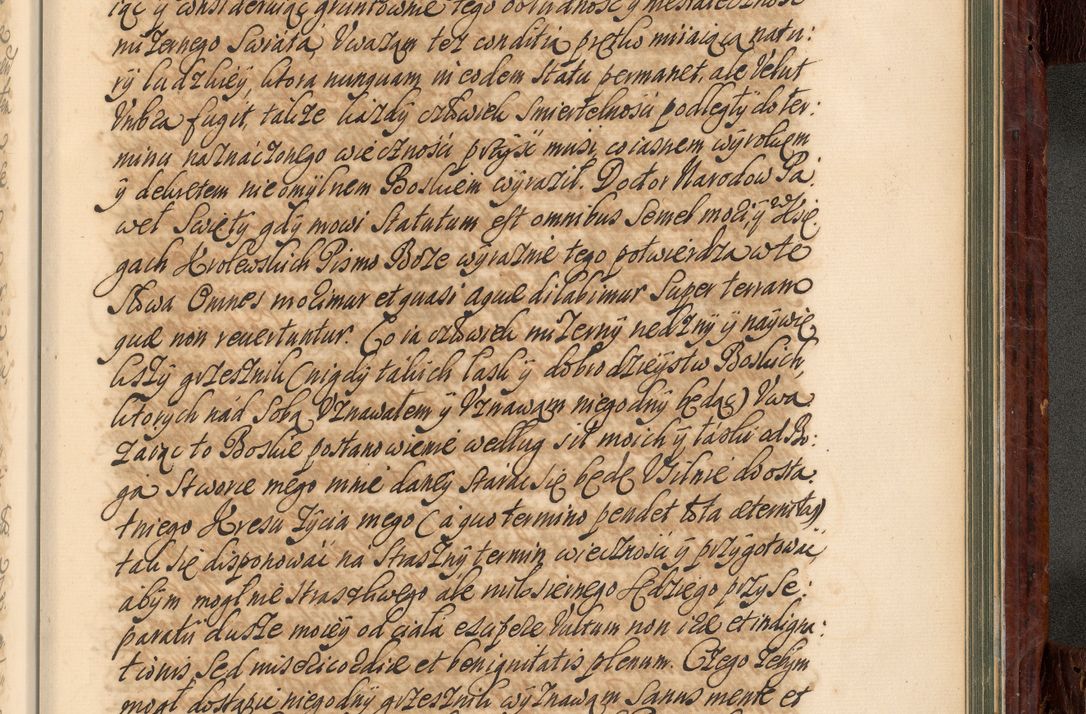 iąc y considerując gruntownie tego obłudność y niestateczność
mizernego Swiata, Uważam też conditią prętko miiaiącą natu:
ry ludzkiey, ktora nunquam in eodem Statu permanet, ale Velut
Umbra fugit, takze kazdy człowiek Smiertelnosci podległy do ter:
minu naznaczonego wiecznosci przyść musi, co iasnem wyrokiem
y dekretem nieomylnem Boskiem wyraził. Doctor Narodow Pa:
weł Swięty gdy mowi Statutum est omnibus Semel mori, y w Xsię
gach Krolewskich Pismo Boże wyraznie tego potwierdza w te
Słowa Omnes morimur et quasi aquæ dilabimur Super terram
quæ non revertuntur. Co ia człowiek mizerny nędzny y naywię
kszy grzesznik (nigdy takich łask y dobrodzieystw Boskich,
ktorych nad Sobą Uznawałem y Uznawam niegodny będąc) Uwa
zaiąc to Boskie postanowienie według sił moich y łaski od Bo:
ga Stworce mego mnie daney starac się będę Usilnie do osta
tniego Kresu Zycia mego (a quo termino pendet tota æternitas)
tak się disponować na straszny termin wieczności y przygotować
abym mogł nie straszliwego ale miłosiernego Sędziego przy se:
paratij dusze moiey od ciała experire Vultum non iræ et indigna:
tionis Sed misericordiæ et benignitatis plenum. Czego żebym
mogł dostąpić niegodny grzesznik wyznawam Sanus mente et